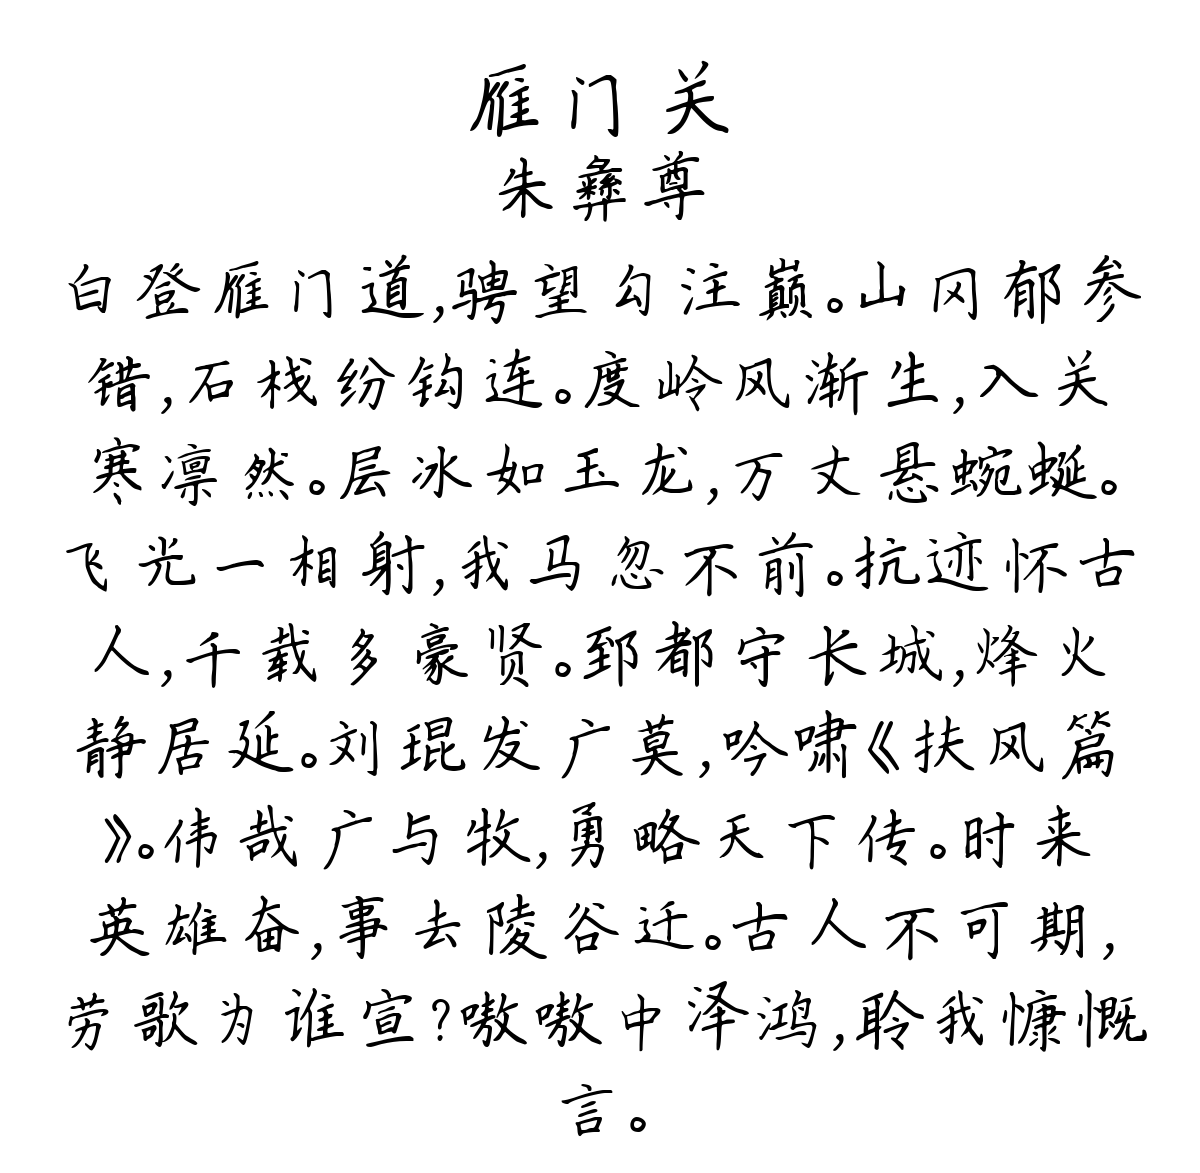 雁门关
朱彝尊
白登雁门道,骋望勾注巅。山冈郁参
错,石栈纷钩连。度岭风渐生,入关
寒凛然。层冰如玉龙,万丈悬蜿蜒。
飞光一相射,我马忽不前。抗迹怀古
人,千载多豪贤。郅都守长城,烽火
静居延。刘琨发广莫,吟啸《扶风篇
》。伟哉广与牧,勇略天下传。时来
英雄奋,事去陵谷迁。古人不可期,
劳歌为谁宣?嗷嗷中泽鸿,聆我慷慨
言。